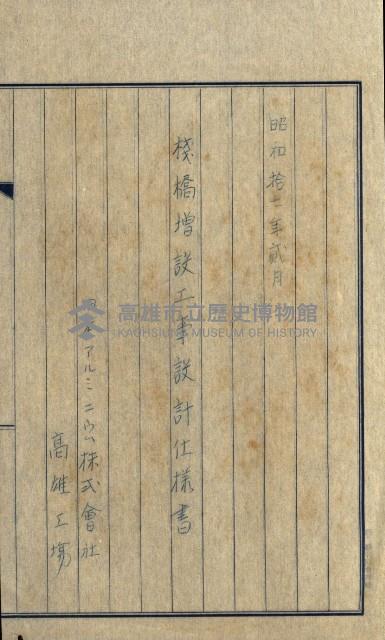 昭和拾二年貳月
棧橋增設工事設計仕様書
日本アルミニウム株式會社
高雄工場
高雄市立歷史博物館
KAOHSIUNG MUSEUM OF HISTORY